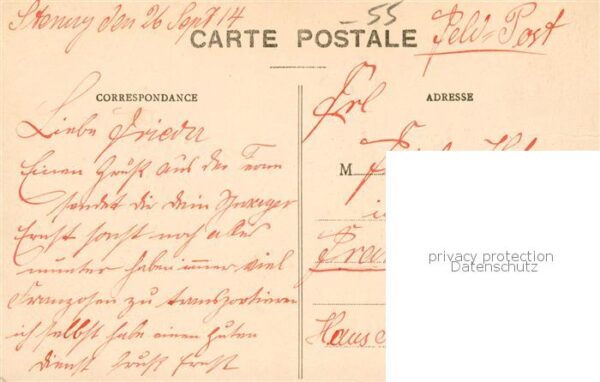 Stenay den 26 Sept 14
55
Feld-Post
CARTE POSTALE
CORRESPONDANCE
ADRESSE
Frl
Liebe Frieda
Einen Gruß aus der Ferne
M
sendet dir dein
Ernst sonst noch alles
munter haben immer viel
Franzosen zu transportieren
ich selbst habe einen guten
Haus
dienst Gruß Ernst
privacy protection
Datenschutz